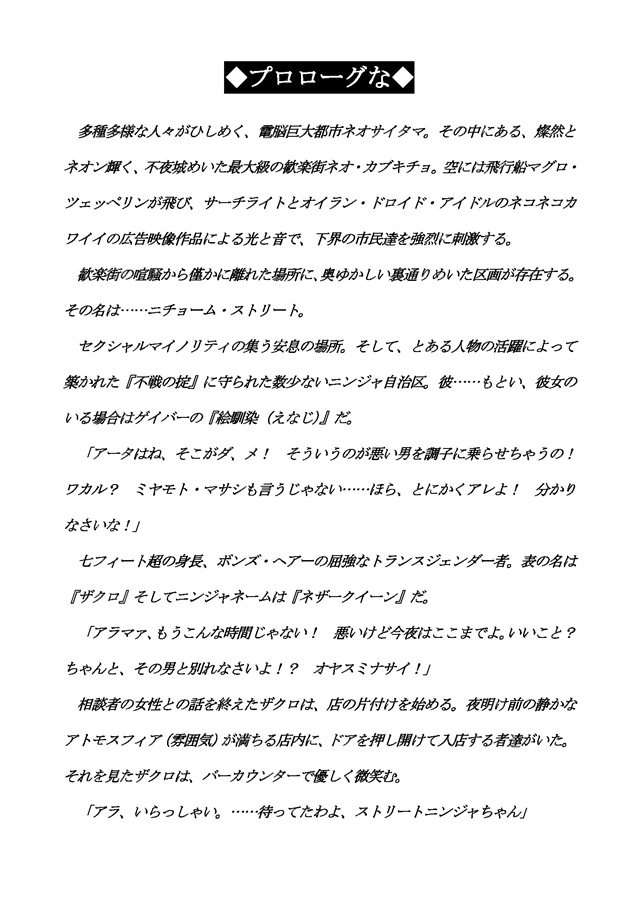 ◆プロローグな◆
　多種多様な人々がひしめく、電脳巨大都市ネオサイタマ。その中にある、燦然と
ネオン輝く、不夜城めいた最大級の歓楽街ネオ・カブキチョ。空には飛行船マグロ・
ツェッペリンが飛び、サーチライトとオイラン・ドロイド・アイドルのネコネコカ
ワイイの広告映像作品による光と音で、下界の市民達を強烈に刺激する。
　歓楽街の喧騒から僅かに離れた場所に、奥ゆかしい裏通りめいた区画が存在する。
その名は……ニチョーム・ストリート。
　セクシャルマイノリティの集う安息の場所。そして、とある人物の活躍によって
築かれた『不戦の掟』に守られた数少ないニンジャ自治区。彼……もとい、彼女の
いる場合はゲイバーの『絵馴染（えなじ）』だ。
　「アータはね、そこがダ、メ！　そういうのが悪い男を調子に乗らせちゃうの！
ワカル？　ミヤモト・マサシも言うじゃない……ほら、とにかくアレよ！　分かり
なさいな！」
　七フィート超の身長、ボンズ・ヘアーの屈強なトランスジェンダー者。表の名は
『ザクロ』そしてニンジャネームは『ネザークイーン』だ。
　「アラマァ、もうこんな時間じゃない！　悪いけど今夜はここまでよ。いいこと？
ちゃんと、その男と別れなさいよ！？　オヤスミナサイ！」
　相談者の女性との話を終えたザクロは、店の片付けを始める。夜明け前の静かな
アトモスフィア（雰囲気）が満ちる店内に、ドアを押し開けて入店する者達がいた。
それを見たザクロは、バーカウンターで優しく微笑む。
　「アラ、いらっしゃい。……待ってたわよ、ストリートニンジャちゃん」